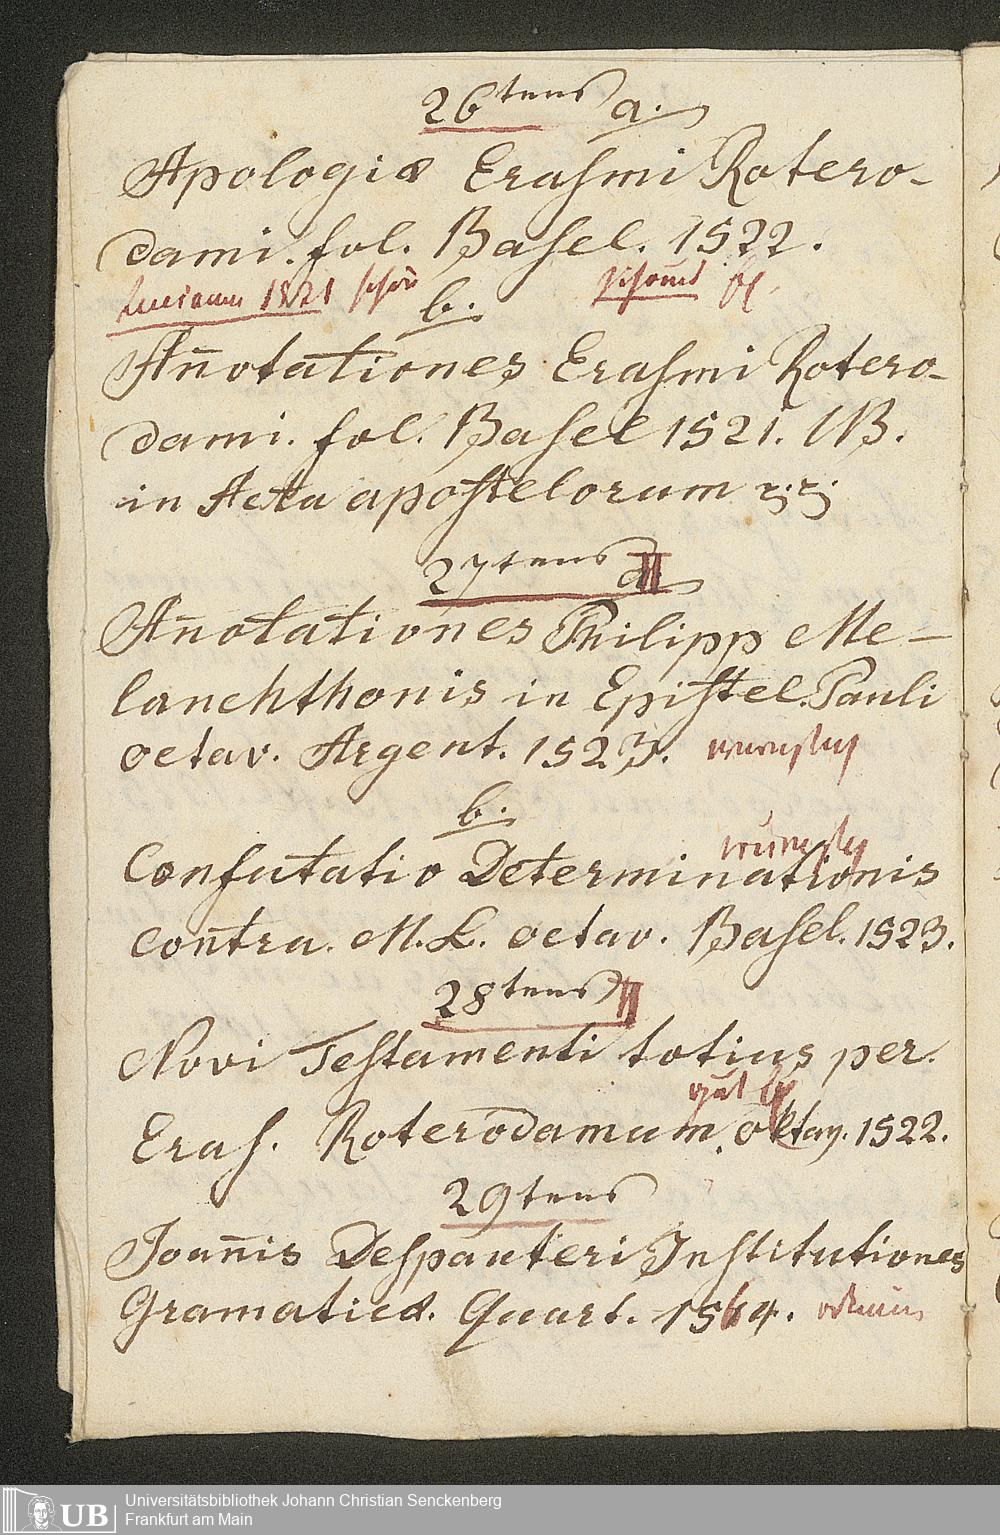 26tens a.
Apologiæ Erasmi Rotero-
dami. fol. Basel. 1522.
1521
b.
Añotationes Erasmi Rotero-
dami. fol. Basel 1521. NB.
in Acta apostelorum
27tens a II
Añotationes Philipp Me-
lanchthonis in Epistel. Pauli
octav. Argent. 1523.
b.
Confutatio Determinationis
contra. M. L. octav. Basel. 1523.
28tens II
Novi Testamenti totius per.
gut
Eras. Roterodamum. oktav. 1522.
29tens
Joañis Despauteri Institutiones
Gramaticæ. Quart. 1564.
Universitätsbibliothek Johann Christian Senckenberg
Frankfurt am Main
UB